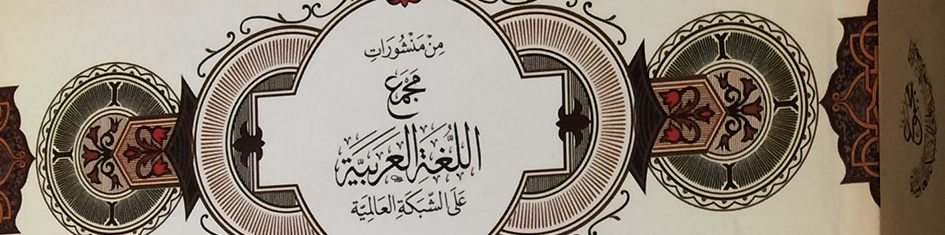 مِنْ مَنْشُورَاتِ
مَجْمَع
اللُّغَةِ العَرَبِيَّةِ
عَلَى الشَّبَكَةِ العَالَمِيَّة